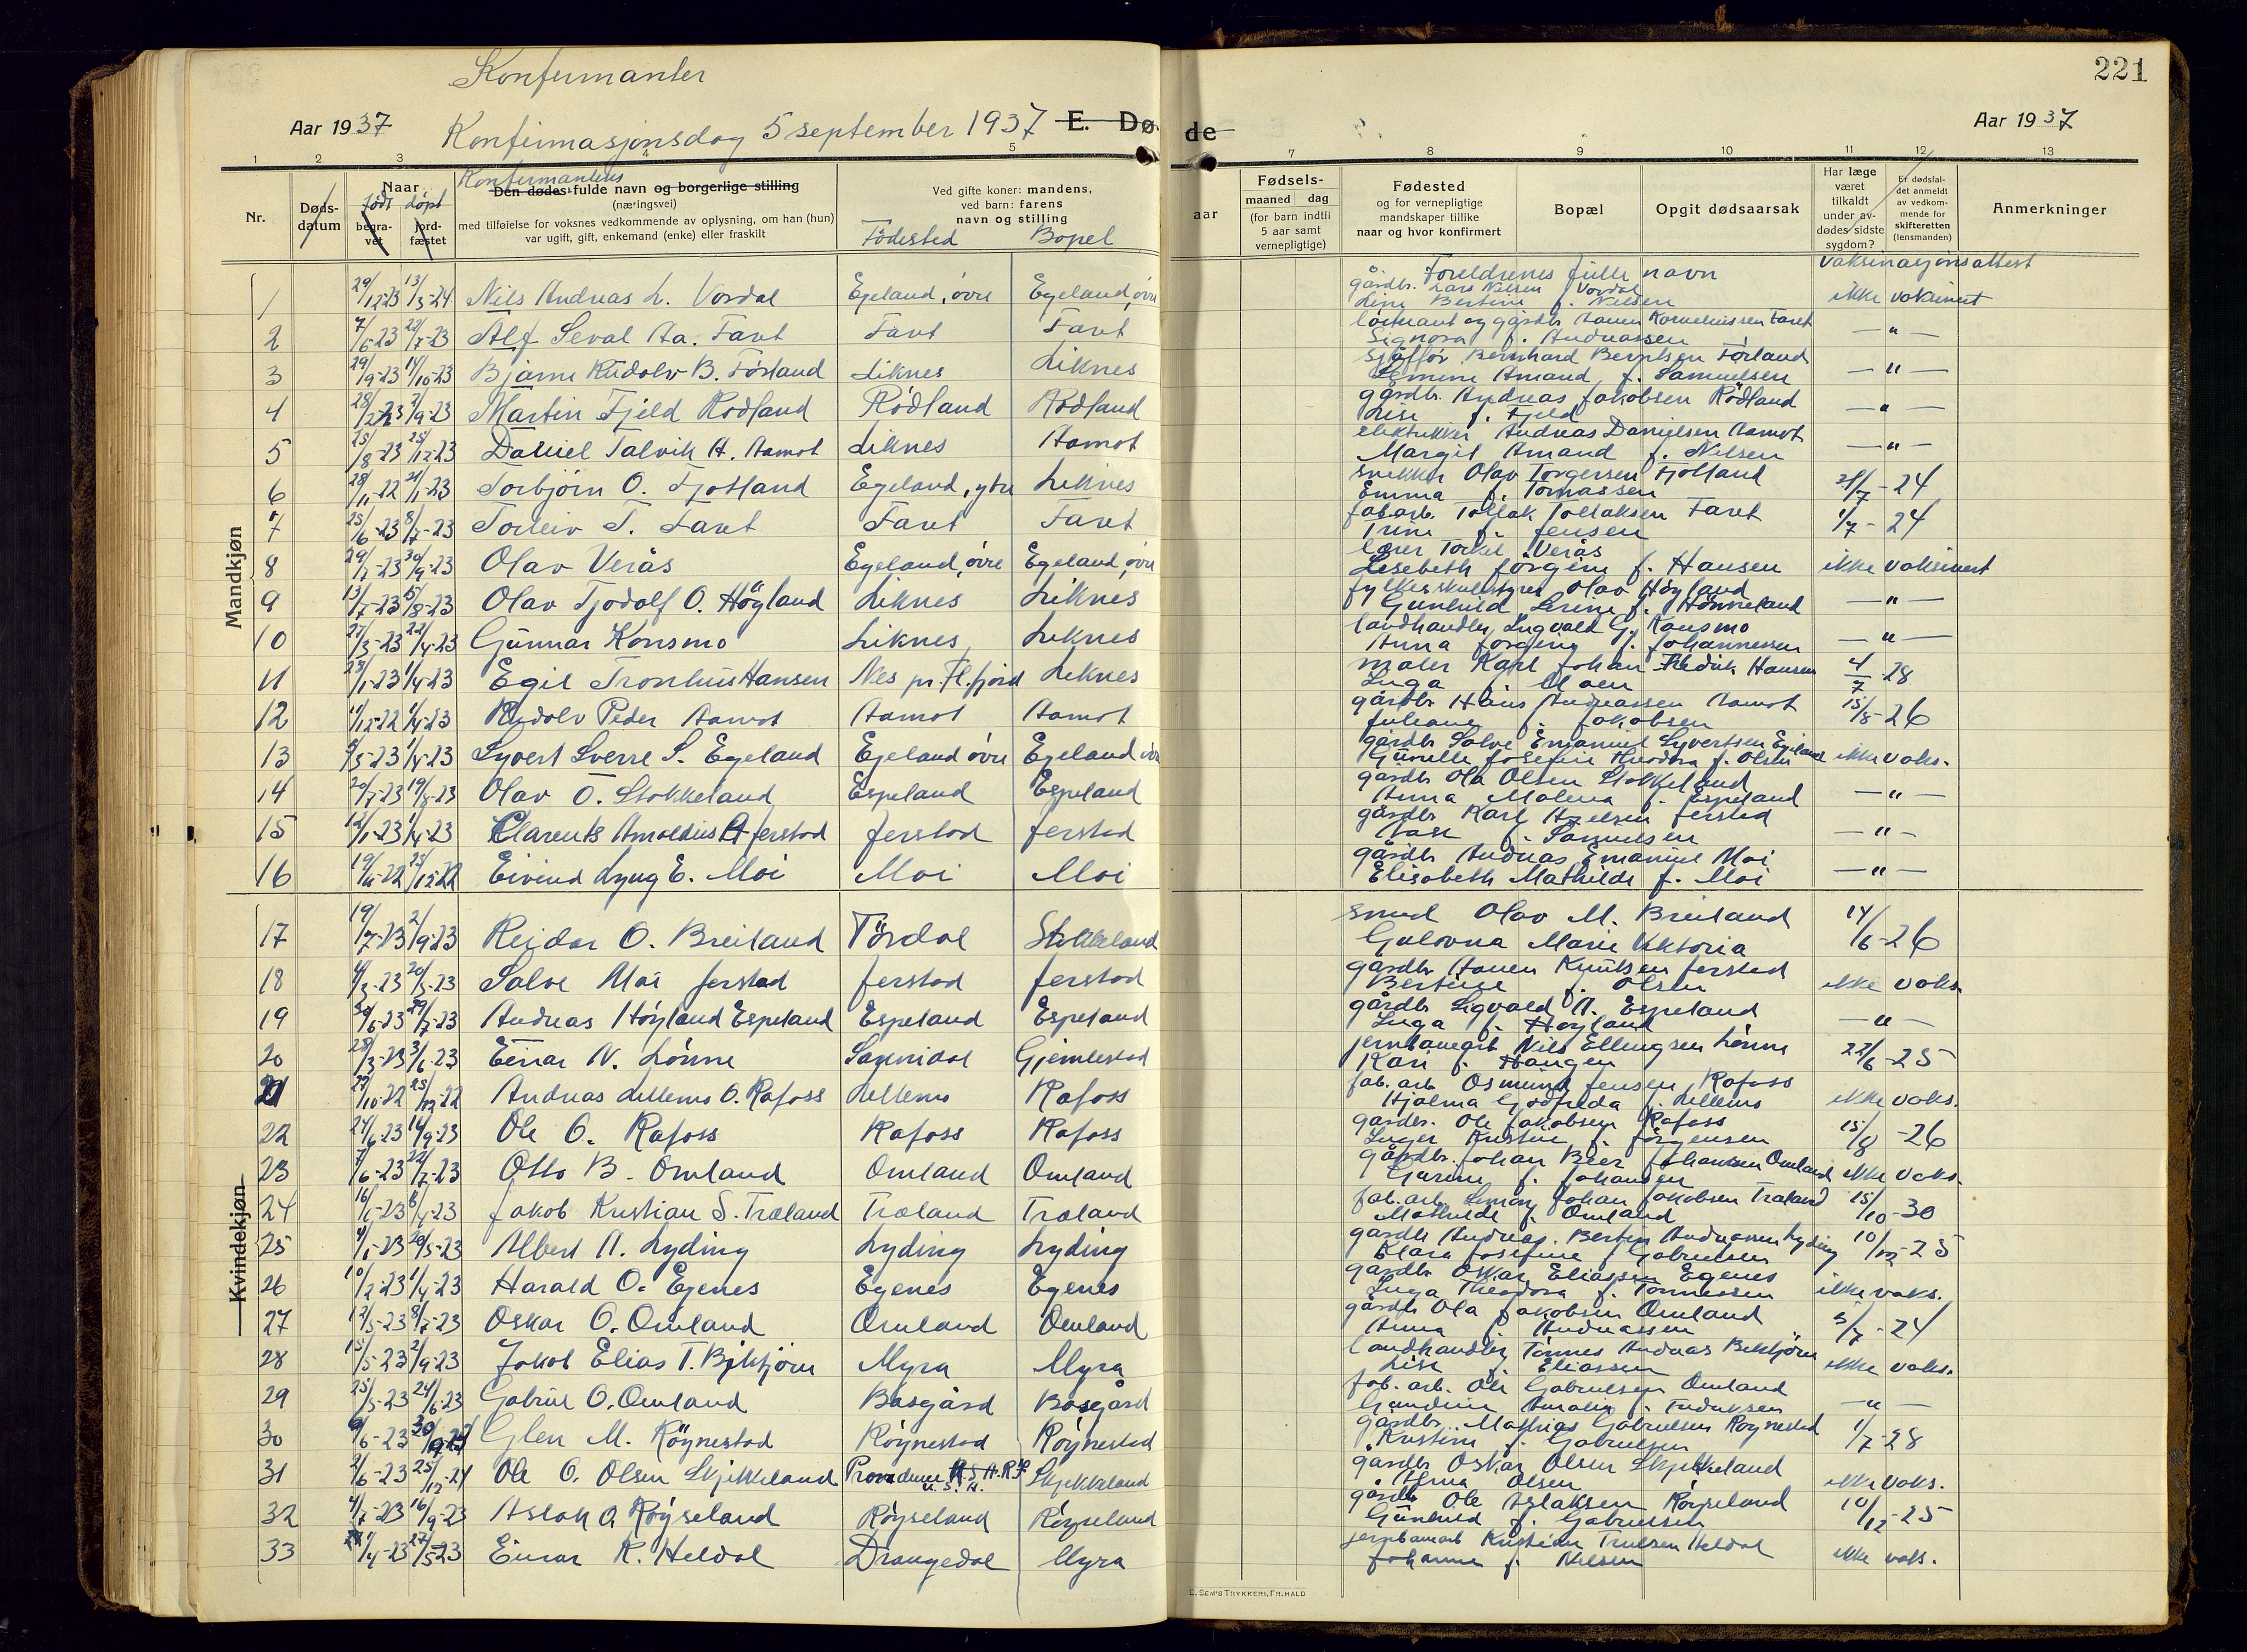 Konfirmanter
221
Aar 1937 Konfirmasjonsdag 5 september 1937 E. Dø- de Aar 1937
1 2 3 4 5 7 8 9 10 11 12 13
Nr.
Døds-
datum
Naar
født døpt
begra-
vet
jord-
fæstet
Konfirmantens
Den dødes fulde navn og borgerlige stilling
(næringsvei)
med tilføielse for voksnes vedkommende av oplysning, om han (hun)
var ugift, gift, enkemand (enke) eller fraskilt
Ved gifte koner: mandens,
ved barn: farens
navn og stilling
Fødested Bopel
aar
Fødsels-
maaned dag
(for barn indtil
5 aar samt
vernepligtige)
Fødested
og for vernepligtige
mandskaper tillike
naar og hvor konfirmert
Bopæl
Opgit dødsaarsak
Har læge
været
tilkaldt
under av-
dødes sidste
sygdom?
Er dødsfal-
det anmeldt
av vedkom-
mende for
skifteretten
(lensmanden)
Anmerkninger
Foreldrenes fulle navn vaksinasjonsattest
Mandkjøn
1 29/12-23 13/3-24 Nils Andreas L. Vordal Egeland, øvre Egeland, øvre
gårdbr. Lars Nilsen Vordal
Line Bertine f. Nilsen ikke vaksinert
2 7/6-23 22/7-23 Alf Seval Aa. Faret Faret Faret
løitnant og gårdbr. Aanen Korneliussen Faret
Signora f. Andreassen — " —
3 29/9-23 14/10-23 Bjarne Rudolv B. Førland Liknes Liknes
sjåffør Bernhard Berntsen Førland
Amand f. Samuelsen — " —
4 2/9-23 Martin Fjeld Rødland Rødland Rødland
gårdbr. Andreas Jakobsen Rødland
Lise f. Fjeld — " —
5 25/8-23 25/12-23 Daniel Talvik A. Aamot Liknes Aamot
Andreas Danielsen Aamot
Margit Amand f. Nilsen — " —
6 28/11-22 21/1-23 Torbjørn O. Fjotland Egeland, ytre Liknes
snekker Olav Torgersen Fjotland
Emma f. Tomassen 21/7-24
7 25/6-23 8/7-23 Torleiv T. Faret Faret Faret
fab.arb. Tollak Tollaksen Faret
Trine f. Jensen 1/7-24
8 29/7-23 30/9-23 Olav Verås Egeland, øvre Egeland, øvre
lærer Torkel Verås
Lisebeth Jørgine f. Hansen ikke vaksinert
9 13/7-23 5/8-23 Olav Tjodolf O. Høgland Liknes Liknes
fylkesskulestyrer Olav Høgland
Gunhild Serine f. Hønneland — " —
10 27/3-23 22/4-23 Gunnar Konsmo Liknes Liknes
landhandler Ingvald G. Konsmo
Anna Jorgine f. Johannessen — " —
11 23/1-23 1/4-23 Egil Tronhus Hansen Nes pr. Fl.fjord Liknes
maler Karl Johan Fredrik Hansen
Inga f. Moen 4/7-28
12 11/12-22 1/4-23 Rudolv Peder Aamot Aamot Aamot
gårdbr. Hans Andreassen Aamot
Juliane f. Jakobsen 15/8-26
13 1/4-23 Syvert Sverre S. Egeland Egeland øvre Egeland øvre
gårdbr. Salve Emanuel Syvertsen Egeland
Gunelle Josefine Theodora f. Olsen ikke vaks.
14 20/7-23 19/8-23 Olav O. Stokkeland Espeland Espeland
gårdbr Ola Olsen Stokkeland
Anna Malena f. Espeland — " —
15 12/1-23 1/4-23 Clarents Arnoldius A Jerstad Jerstad Jerstad
gårdbr Karl Axelsen Jerstad
Aase f. Samuelsen — " —
16 19/11-22 25/12-22 Eivind Lyng E. Moi Moi Moi
gårdbr Andreas Emanuel Moi
Elisabeth Mathilde f. Moi — " —
Kvindekjøn
17 19/7-23 2/9-23 Reidar O. Breiland Tørdal Stokkeland
smed Olav M. Breiland
Gulovna Marie Viktoria 14/6-26
18 4/3-23 20/5-23 Salve Moi Jerstad Jerstad Jerstad
gårdbr Aanen Knutsen Jerstad
Bertine f. Olsen ikke vaks.
19 30/6-23 29/7-23 Andreas Høyland Espeland Espeland Espeland
gårdbr Sigvald A. Espeland
Inga f. Høyland — " —
20 28/3-23 3/6-23 Einar N. Lønne Sannidal Gjemlestad
jernbanearb Nils Ellingsen Lønne
Kari f. Haugen 22/6-25
21 29/10-22 25/12-22 Andreas Lellems O. Rafoss Lellems Rafoss
fab. arb Osmund Jensen Rafoss
Hjalma Godfreda f. Lellems ikke vaks.
22 24/6-23 16/9-23 Ole O. Rafoss Rafoss Rafoss
gårdbr. Ole Jakobsen Rafoss
Inger Kristine f. Jørgensen 15/8-26
23 7/6-23 22/7-23 Otto B. Omland Omland Omland
gårdbr. Johan Beer Johansen Omland
f. Johansen ikke vaks.
24 16/1-23 8/4-23 Jakob Kristian S. Træland Træland Træland
fab. arb. Simon Johan Jakobsen Træland
Mathilde f. Omland 15/10-30
25 20/5-23 Albert A. Lyding Lyding Lyding
gårdbr Andreas Bertin Andreassen Lyding
Klara Josefine f. Gabrielsen 10/12-25
26 10/2-23 1/4-23 Harald O. Egenes Egenes Egenes
gårdbr Oskar Eliassen Egenes
Inga Theodora f. Tønnessen ikke vaks.
27 12/5-23 8/7-23 Oskar O. Omland Omland Omland
gårdbr Ola Jakobsen Omland
Anna f. Andreassen 5/7-24
28 15/5-23 2/9-23 Jakob Elias T. Birkjörn Myra Myra
landhandler Tønnes Andreas
Lise f. Eliassen ikke vaks.
29 25/5-23 24/6-23 Gabriel O. Omland Båsgård Båsgård
fab. arb. Ole Gabrielsen Omland
Amalia f. Fredriksen — " —
30 6/6-23 Glen M. Røynestad Røynestad Røynestad
gårdbr. Mathias Gabrielsen Røynestad
Kristine f. Gabrielsen 1/7-28
31 2/6-23 25/12-24 Ole O. Olsen Skjekkeland Providence U.S.A. Skjekkeland
gårdbr Oskar Olsen Skjekkeland
Olsen ikke vaks.
32 4/7-23 16/9-23 Aslak O. Røyseland Røyseland Røyseland
gårdbr Ole Aslaksen Røyseland
Gunhild f. Gabrielsen 10/12-25
33 27/5-23 Einar K. Heldal Drangedal Myra
jernbanearb Kristian Trulsen Heldal
Johanne f. Nilsen ikke vaks.
E. SEM'S TRYKKERI, FR.HALD